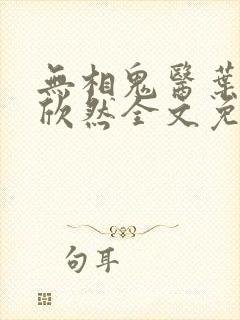 無相鬼醫葉
欣然全文免
句耳